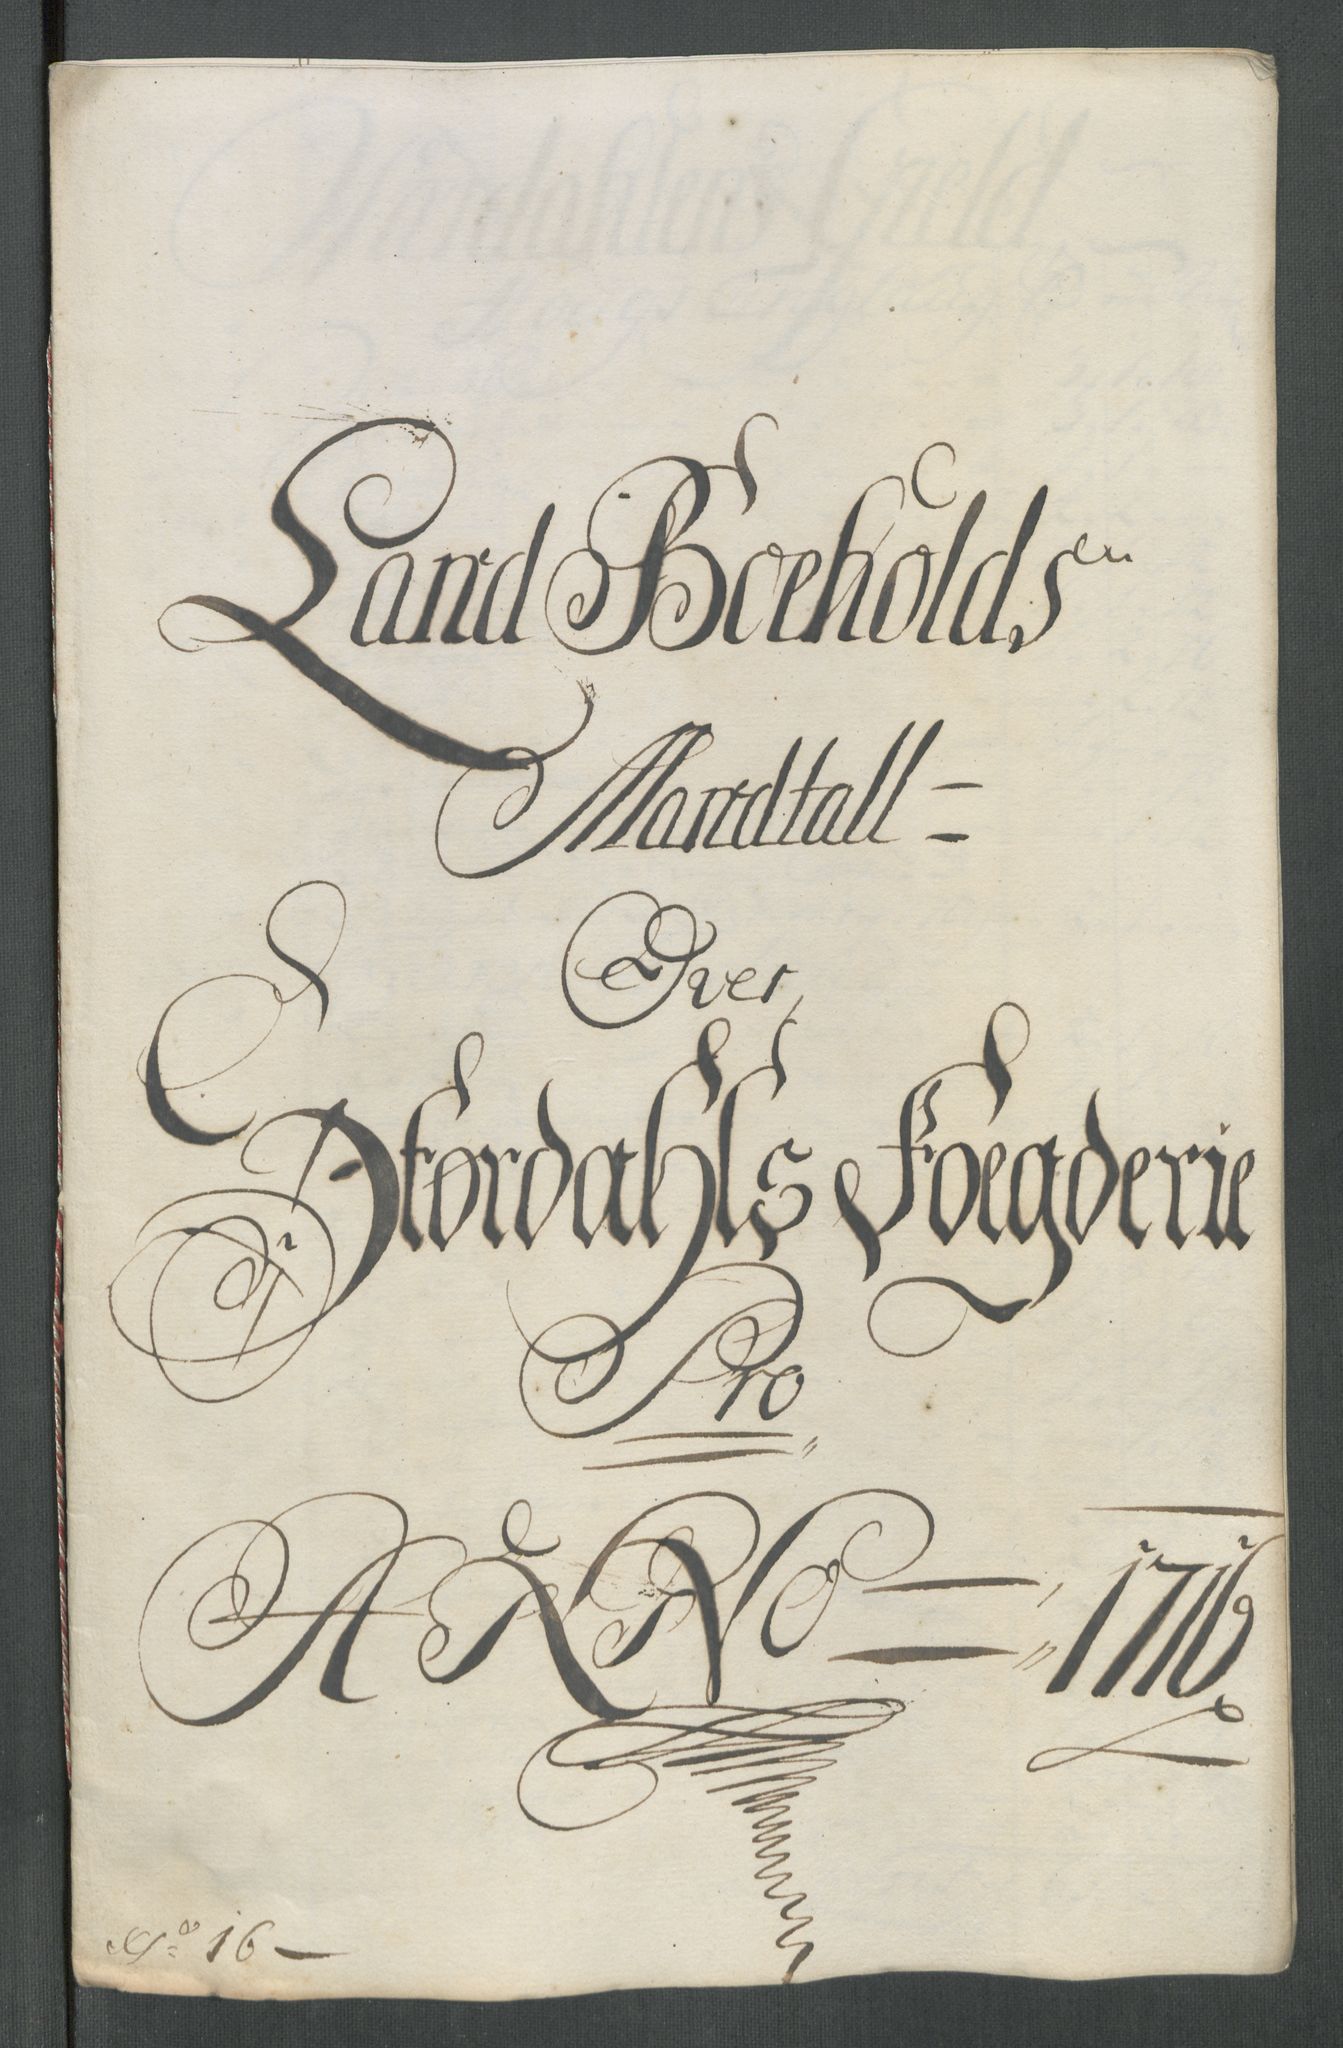 Land Boeholds en
Mandtall =
Over
Størdahls Foegderie
Pro
ANNO — 1716
No 16 —